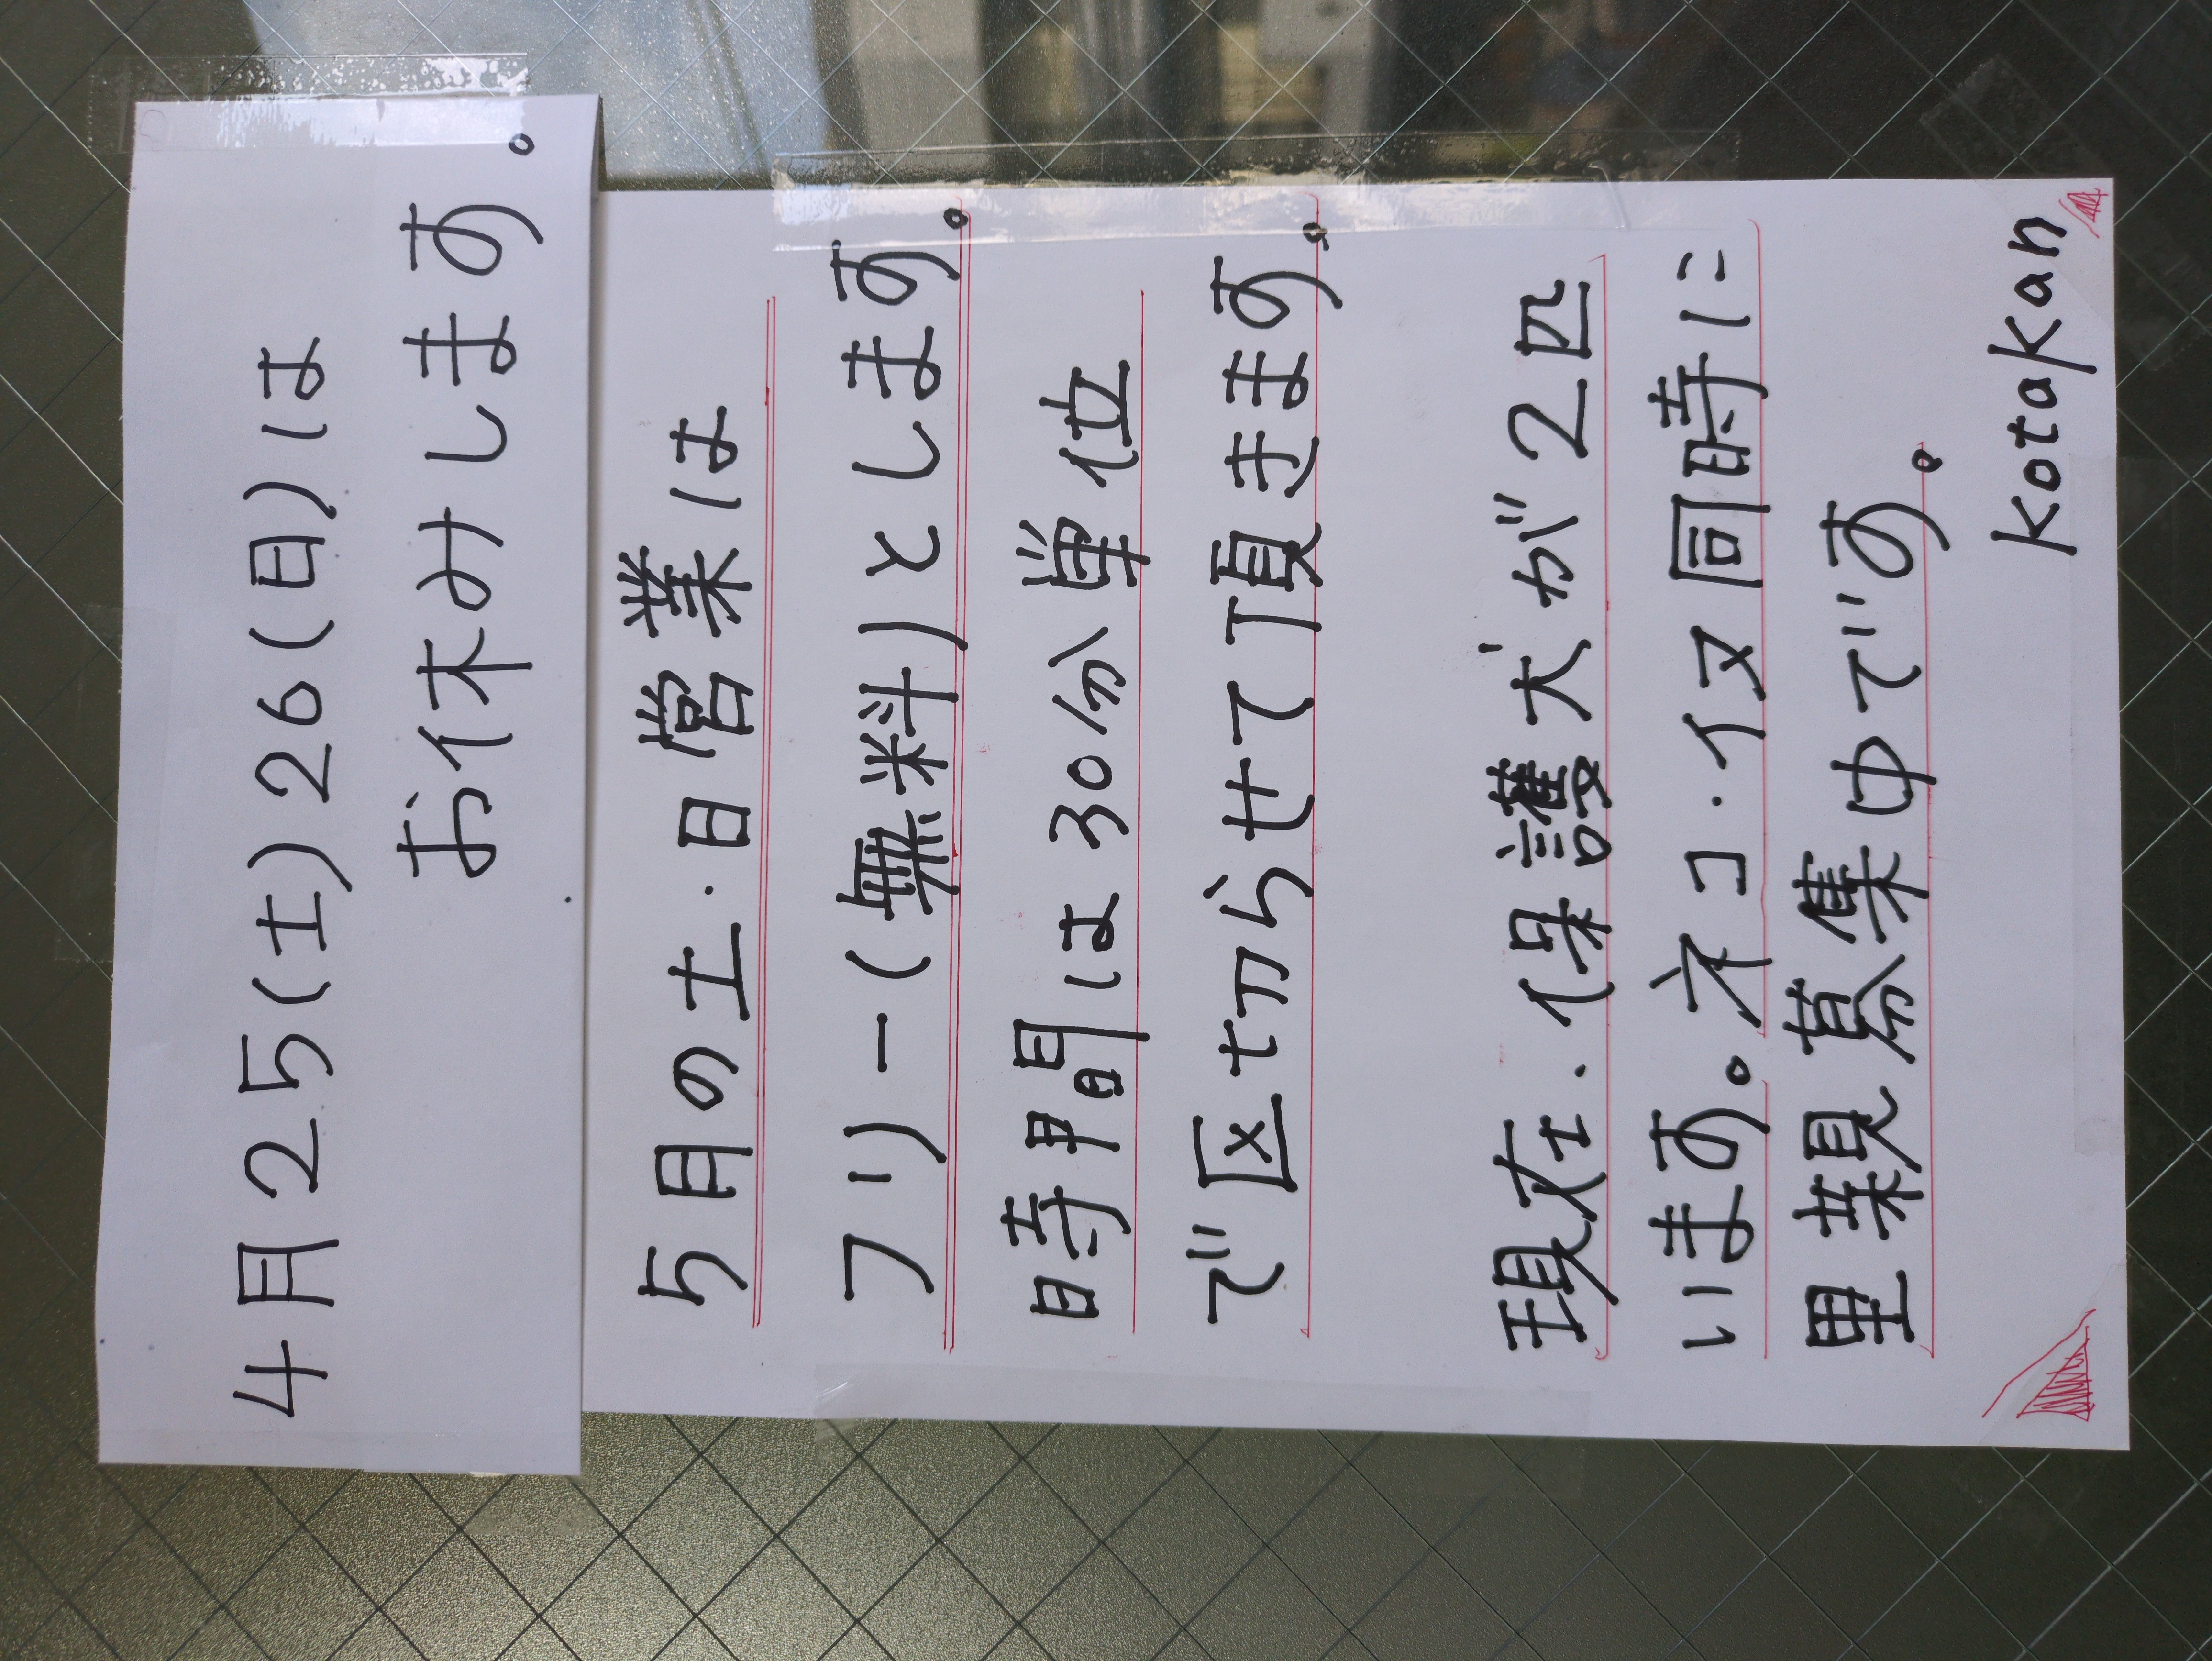 4月25(土)26(日)は
お休みします。
5月の土・日営業は
フリー(無料)とします。
時間は30分単位
で区切らせて頂きます。
現在・保護犬が2匹
います。ネコ・イヌ同時に
里親募集中です。
Kotakan